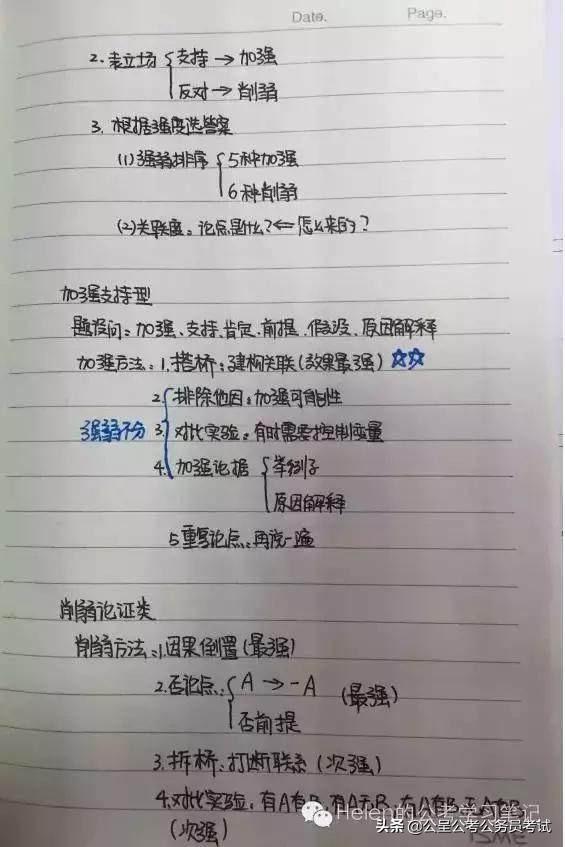 Date.
Page.
2. 表立场 支持 → 加强
反对 → 削弱
3. 根据强度选答案
(1)强弱排序 5种加强
6种削弱
(2)关联度：论点是什么? ⇐ 怎么来的?
加强支持型
题设问：加强、支持、肯定、前提、假设、原因解释
加强方法：1. 搭桥：建构关联(效果最强) ☆☆
2. 排除他因：加强可能性
强弱不分 3. 对比实验：有时需要控制变量
4. 加强论据 举例子
原因解释
5 重复论点：再说一遍
削弱论证类
削弱方法：1. 因果倒置(最强)
2. 否论点： A → -A (最强)
否前提
3. 拆桥：打断联系 (次强)
4. 对比实验：有A有B，有A无B，
(次强)
Helen的公考学习笔记
头条 @公呈公考公务员考试